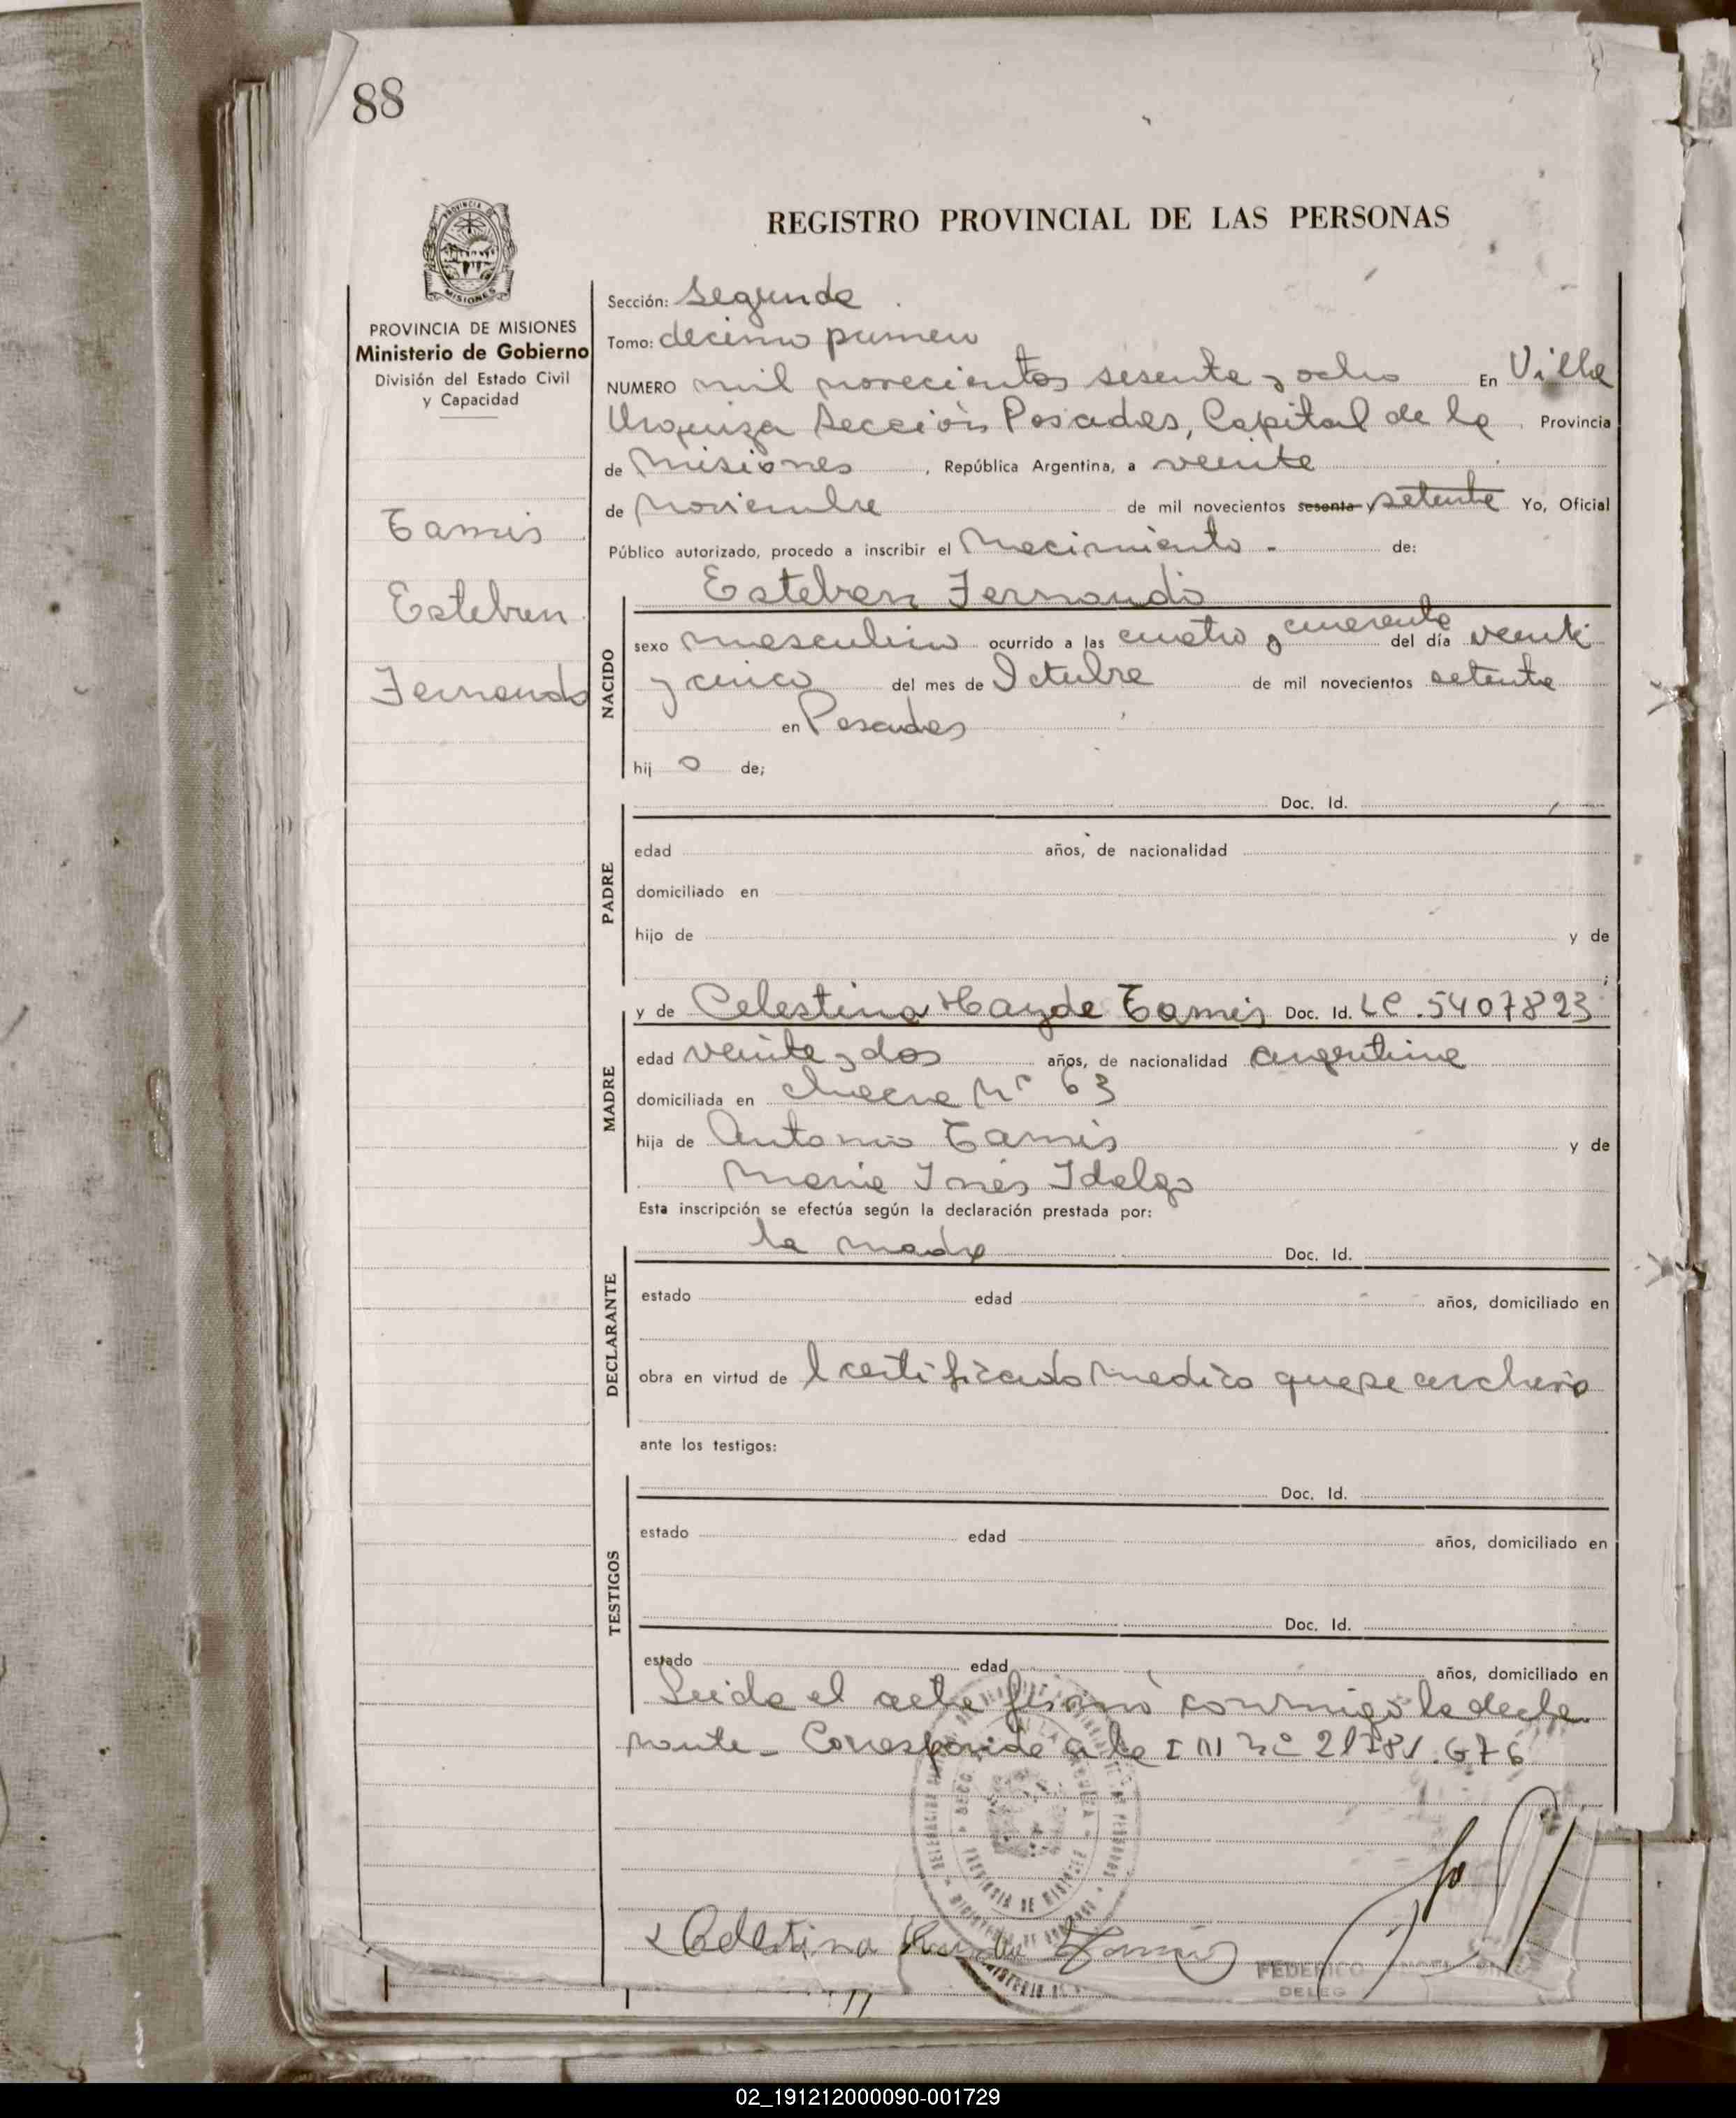 88
PROVINCIA DE
MISIONES
REGISTRO PROVINCIAL DE LAS PERSONAS
PROVINCIA DE MISIONES
Ministerio de Gobierno
División del Estado Civil
y Capacidad
Tamis
Esteban
Fernando
Sección: Segunda
Tomo: decimo primero
NUMERO mil novecientos sesenta y ocho En Villa
Urquiza Sección Posadas, Capital de la Provincia
de Misiones , República Argentina, a veinte
de Noviembre de mil novecientos sesenta y setenta Yo, Oficial
Público autorizado, procedo a inscribir el Nacimiento - de:
Esteban Fernando
NACIDO
sexo masculino ocurrido a las cuatro y cuarenta del día veinti
y cinco del mes de Octubre de mil novecientos setenta
en Posadas
hij o de;
PADRE
Doc. Id.
edad años, de nacionalidad
domiciliado en
hijo de y de
;
MADRE
y de Celestina Hayde Tamis Doc. Id. LC .5407823
edad veinte y dos años, de nacionalidad argentina
domiciliada en chacra Nº 63
hija de Antonio Tamis y de
Maria Inés Idalgo
Esta inscripción se efectúa según la declaración prestada por:
DECLARANTE
la madre Doc. Id.
estado edad años, domiciliado en
obra en virtud de l certificado medico que se archivo
ante los testigos:
TESTIGOS
Doc. Id.
estado edad años, domiciliado en
Doc. Id.
estado edad años, domiciliado en
Leida el acta firmó conmigo la decla
rante - Corresponde a la I M nº 21781.676
Celestina Tamis
FEDERICO
DELEG
02_191212000090-001729